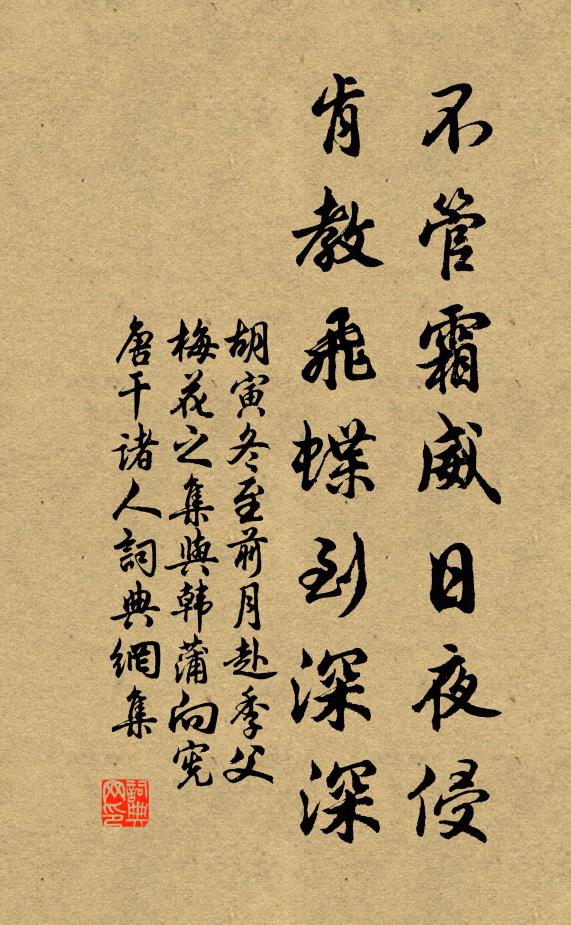 不管霜威日夜侵
肯教飛蝶到深深
胡寅冬至前月赴季父
梅花之集與韩蒲向宪
唐干诸人詞典網集
詞典網印